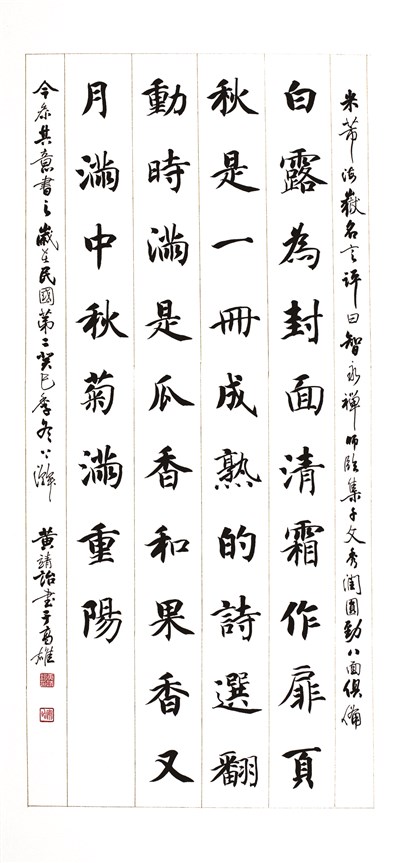 米芾海嶽名言評曰智永禪師臨集千文秀潤圓勁八面俱備
白露為封面清霜作扉頁
秋是一冊成熟的詩選翻
動時滿是瓜香和果香又
月滿中秋菊滿重陽
今參其意書之歲在民國第二癸巳季冬下澣 黃靖詒書于高雄